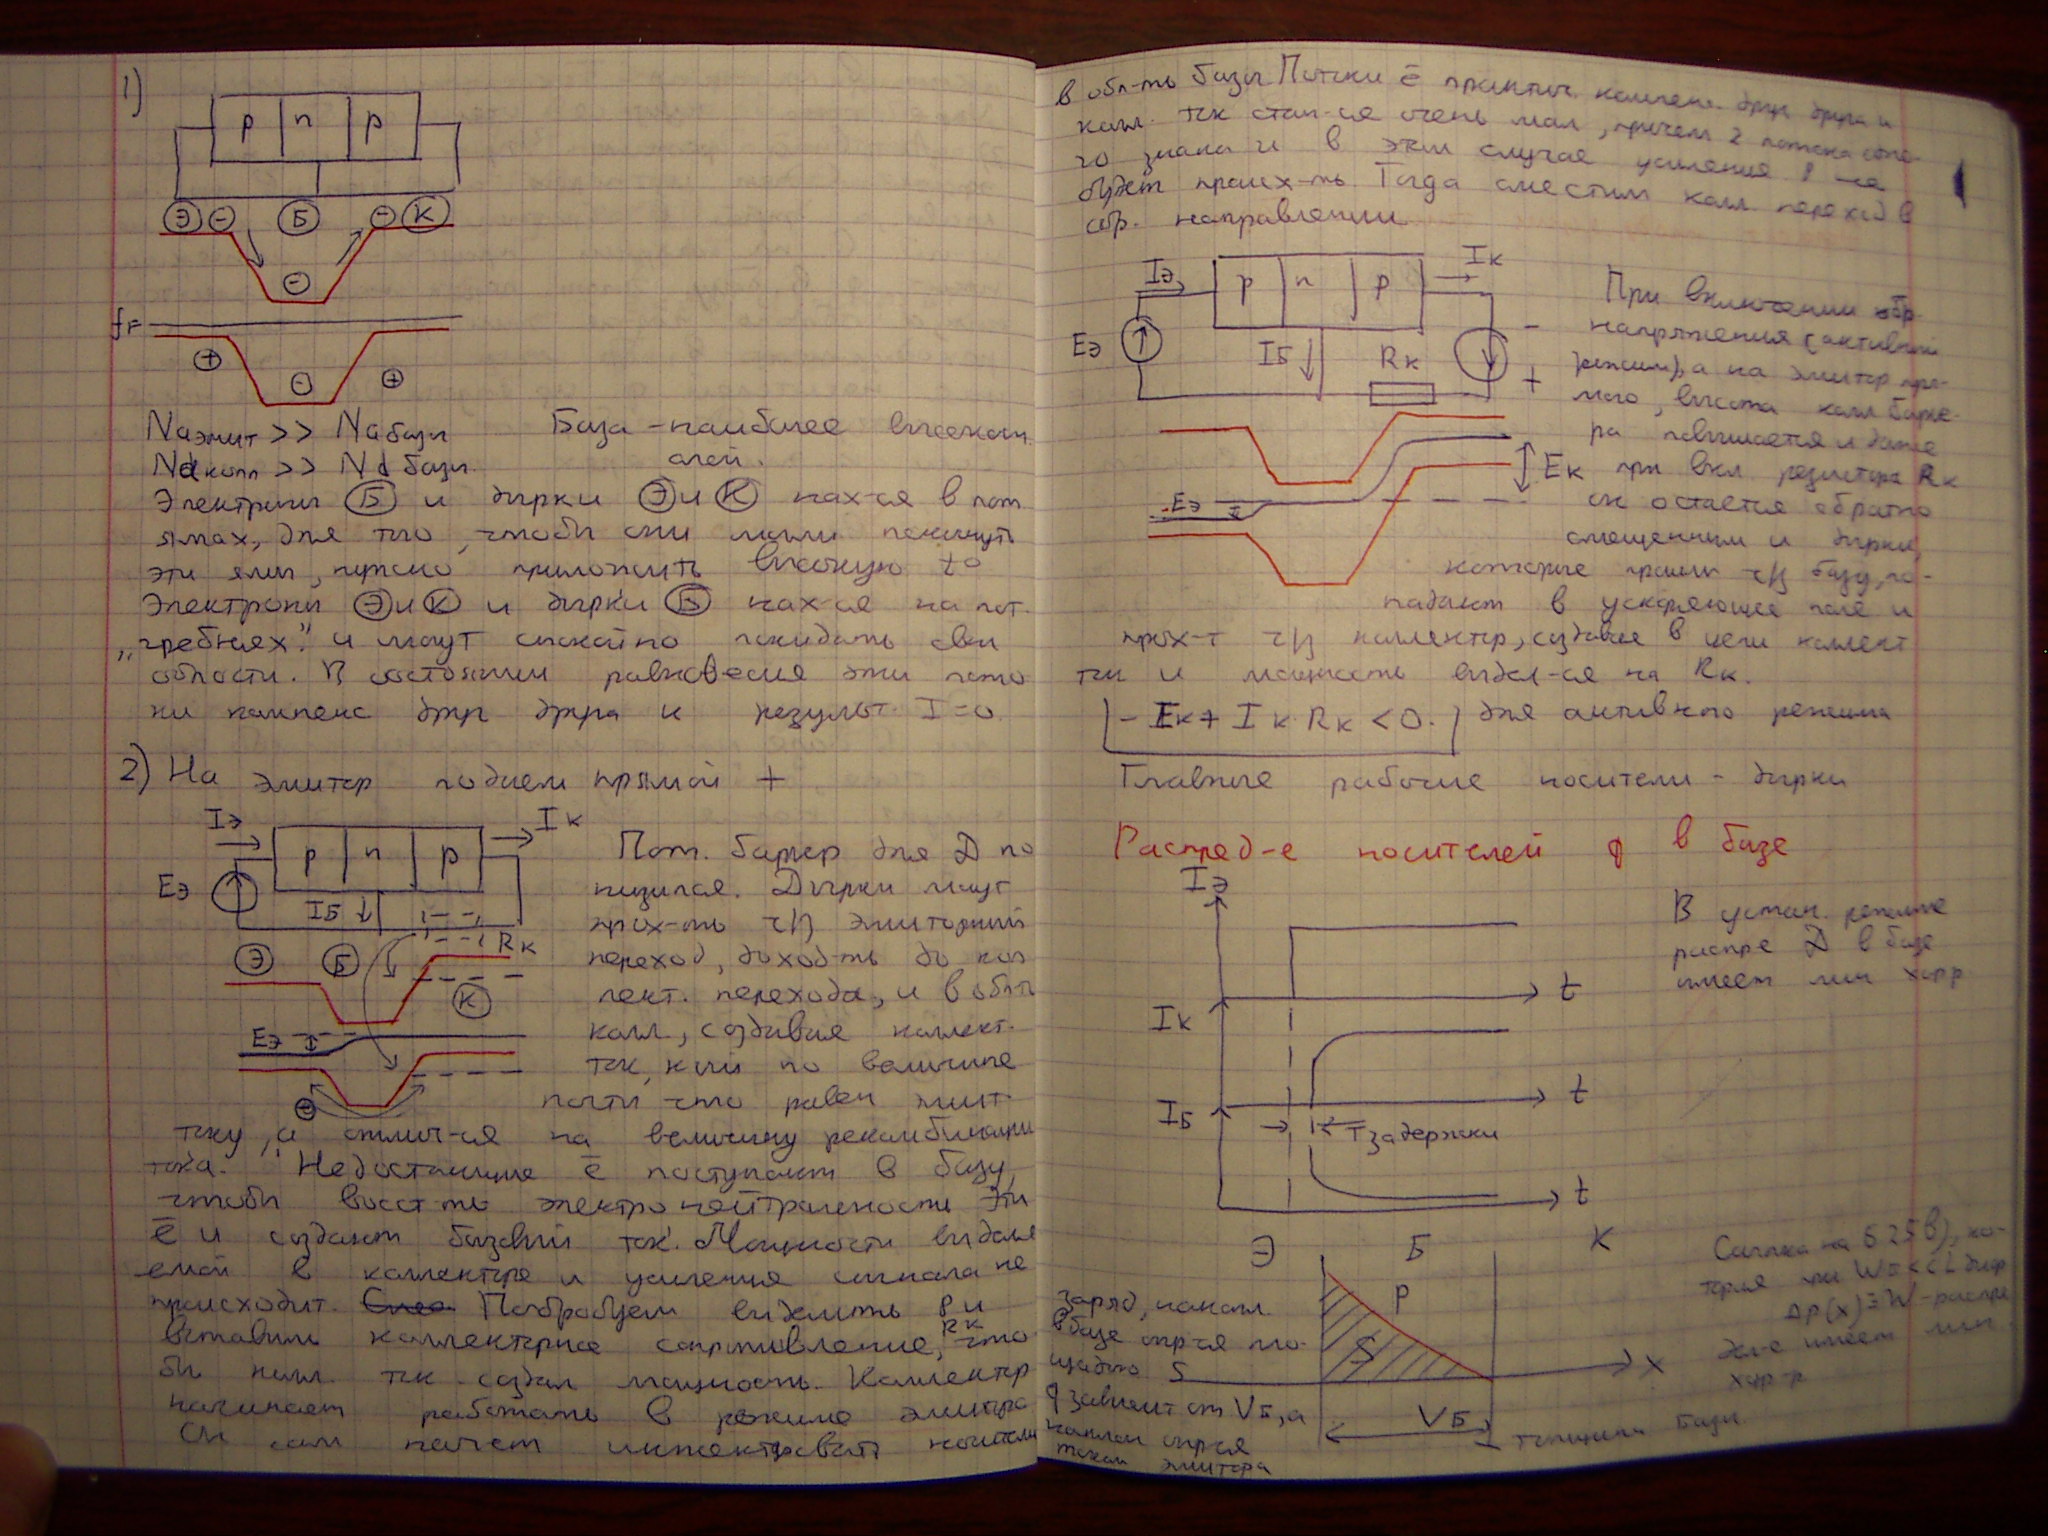 1)
p n p
Э − Б − К
−
fF
+ − +
Naэмит >> Naбазы База - наиболее высоком
Ndколл >> Nd базы
Электроны Б и дырки Э и К нах-ся в пот
ямах, для того, чтобы они могли покинуть
эти ямы, нужно приложить высокую t°
Электроны Э и К и дырки Б нах-ся на пот.
„гребнях" и могут спокойно покидать свои
области. В состоянии равновесия эти пото
ки компенс друг друга и результ. I=0
2) На эмитер подаем прямой +
Iэ Iк
p n p
Eэ
IБ
Rк
Э Б
К
Eэ
−
Пот. барьер для Д по
низился. Дырки могут
прох-ть ч/з эмиторный
переход, доход-ть до кол
лект. перехода, и в обл-ть
колл, создавая коллект.
ток, к-ый по величине
почти что равен эмит.
току, а отлич-ся на величину рекомбинации
тока. Недостающие ē поступают в базу,
чтобы восст-ть электронейтральность Эти
ē и создают базовый ток. Мощности выделя
емой в коллекторе и усиления сигнала не
происходит. Попробуем выделить P и
вставим коллекторное сопротивление, Rк что
бы колл. ток создал мощность. Коллектор
начинает работать в режиме эмитора
Он сам начнет инжектировать носители
в обл-ть базы Потоки ē практич. компенс. друг друга и
колл. ток стан-ся очень мал, причем 2 потока
го знака и в этом случае усиления P не
будет происх-ть. Тогда сместим колл переход в
обр. направлении
Iэ Iк
p n p
Eэ
IБ Rк
−
+
Eк
Eэ
При включении обр
напряжения (активный
режим), а на эмитор пря-
мого, высота колл барье-
ра повышается и даже
при вкл резистора Rк
он остается обратно
смещенным и дырки,
которые прошли ч/з базу, по-
падают в ускоряющее поле и
прох-т ч/з коллектор, создавая в цепи коллект
ток и мощность выдел-ся на Rк.
- Eк + Iк Rк < 0. для активного режима
Главные рабочие носители - дырки
Распред-е носителей q в базе
Iэ
t
Iк
t
IБ
Tзадержки
t
В устан. режиме
распре Д в базе
имеет лин хар-р
Э Б К
P
S
x
VБ
толщина базы
заряд, накопл.
в базе опр-ся пло-
щадью S
q зависит от VБ, а
наклон опр-ся
током эмитора
Ссылка на 6 25 в), ко-
торая при WБ << L диф
Δp(x) ≡ W - распре
дел-е имеет лин
хар-р